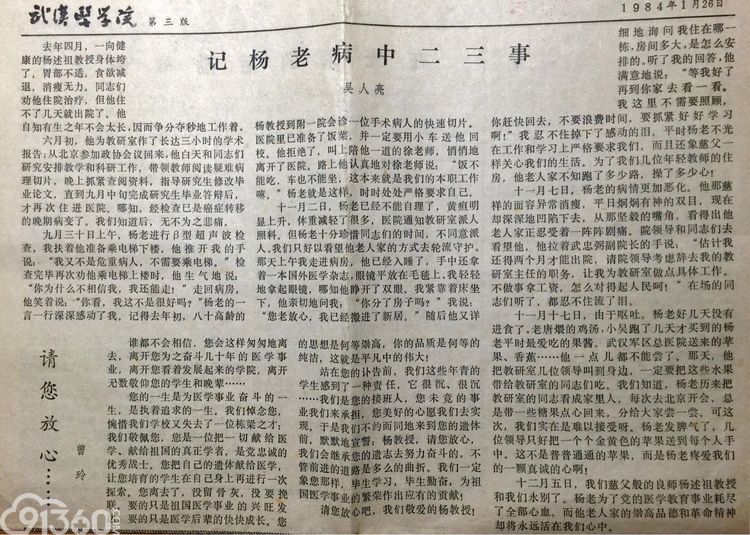 武汉医学院 第三版
1984年1月26日
记杨老病中二三事
吴人亮
去年四月，一向健
康的杨述祖教授身体垮
了，胃部不适，食欲减
退，消瘦无力。同志们
劝他住院治疗，但他住
不了几天就出院了。他
自知有生之年不会太长，因而争分夺秒地工作着。
六月初，他为教研室作了长达三小时的学术
报告；从北京参加政协会议回来，他白天和同志们
研究安排教学和科研工作，带领教师阅读疑难病
理切片，晚上抓紧查阅资料，指导研究生修改毕
业论文，直到九月中旬完成研究生毕业答辩后，
才再次往进医院。哪知，经检查已是癌症转移
的晚期病变了，我们知道后，无不为之悲痛。
九月三十日上午，杨老进行B型超声波检
查，我扶着他准备乘电梯下楼，他推开我的手
说：“我又不是危重病人，不需要乘电梯。”检
查完毕再次劝他乘电梯上楼时，他生气地说：
“你为什么不相信我，我还能走！”走回病房，
他笑着说：“你看，我这不是很好吗？”杨老的一
言一行深深感动了我。记得去年初，八十高龄的
杨教授到附一院会诊一位手术病人的快速切片。
医院里已准备了饭菜，并一定要用小车送他回
校。他拒绝了，叫上陪他一道的徐老师，悄悄地
离开了医院，路上他认真地对徐老师说：“饭不
能吃，车也不能坐，这本来就是我们的本职工作
嘛！”杨老就是这样，时时处处严格要求自己。
十一月二日，杨老已经不能自理了，黄疸明
显上升，体重减轻了很多，医院通知教研室派人
照料。但杨老十分珍惜同志们的时间，不同意派
人。我们只好以看望他老人家的方式去轮流守护。
那天上午我走进病房，他已经入睡了，手中还拿
着一本国外医学杂志，眼镜平放在毛毯上。我轻轻
地拿起眼镜，哪知他睁开了双眼。我紧靠着床坐
下，他亲切地问我：“你分了房子吗？”我说：
“您老放心，我已经搬进了新居。”随后他又详
细地询问我住在哪一
栋，房间多大，是怎么安
排的。听了我的回答，他
满意地说：“等我好了
再到你家去看一看。
我这里不需要照顾，
你赶快回去，不要浪费时间，要抓紧好好学习
啊！”我忍不住掉下了感动的泪，平时杨老不光
在工作和学习上严格要求我们，而且还象慈父一
样关心我们的生活。为了我们几位年轻教师的住
房，他老人家不知跑了多少路，操了多少心！
十一月七日，杨老的病情更加恶化。他那慈
祥的面容异常消瘦，平日炯炯有神的双目，现在
却深深地凹陷下去，从那坚毅的嘴角，看得出他
老人家正忍受着一阵阵剧痛。院领导和同志们去
看望他，他拉着武忠弼副院长的手说：“估计我
还得两个月才能出院，请院领导考虑辞去我的教
研室主任的职务，让我为教研室做点具体工作。
不做事拿工资，怎么对得起人民呵！”在场的同
志们听了，都忍不住流了泪。
十一月十七日，由于呕吐，杨老好几天没有
进食了。老唐煨的鸡汤，小吴跑了几天才买到的杨
老平时最爱吃的果酱，武汉军区总医院送来的苹
果、香蕉……他一点儿都不能尝了。那天，他
把教研室几位领导叫到身边，一定要把这些水果
带给教研室的同志们吃。我们知道，杨老历来把
教研室的同志看成家里人，每次去北京开会，总
是带一些糖果点心回来，分给大家尝一尝。可这
次，我们实在是难以接受呀。杨老发脾气了，几
位领导只好把一个个金黄色的苹果送到每个人手
中。这不是普普通通的苹果，而是杨老疼爱我们
的一颗真诚的心啊！
十二月五日，我们慈父般的良师杨述祖教授
和我们永别了。杨老为了党的医学教育事业耗尽
了全部心血，而他老人家的崇高品德和革命精神
却将永远活在我们心中。
请您放心……
曾玲
谁都不会相信，您会这样匆匆地离
去，离开您为之奋斗几十年的医学事
业，离开您看着发展起来的学院，离开
无数敬仰您的学生和晚辈……
您的一生是为医学事业奋斗的一
生，是执着追求的一生。我们悼念您，
惋惜我们学校又失去了一位栋梁之才；
我们敬佩您，您是一位把一切献给医
学、献给祖国的真正学者，是党忠诚的
优秀战士。您把自己的遗体献给医学，
让您培育的学生在自己身上再进行一次
探索。您离去了，没留骨灰，没要挽
联。要的只是祖国医学事业的兴旺发
达，要的只是医学后辈的快快成长。您
的思想是何等崇高，你的品质是何等的
纯洁，这就是平凡中的伟大！
站在您的讣告前，我们这些年青的
学生感到了一种责任，它很沉、很沉
……我们是您的接班人，您未竟的事
业我们来承担，您美好的心愿我们去实
现。于是我们不约而同地来到您的遗体
前，默默地宣誓，杨教授，请您放心，
我们会继承您的遗志去努力奋斗的，不
管前进的道路是多么的曲折，我们一定
象您那样，毕生学习，毕生勤奋，为祖
国医学事业的繁荣作出应有的贡献！
请您放心吧，我们敬爱的杨教授！
91360.com